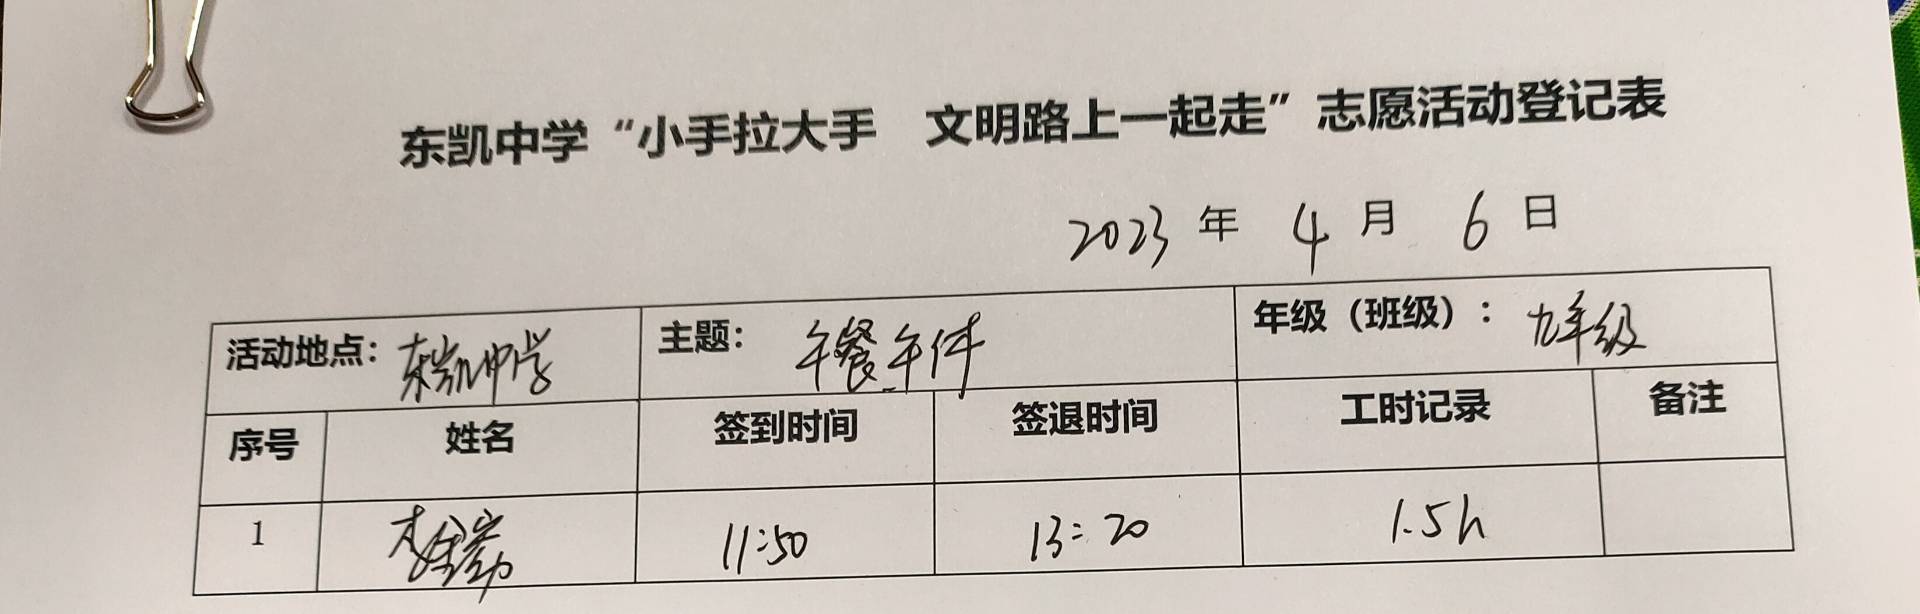 东凯中学“小手拉大手 文明路上一起走”志愿活动登记表
2023 年 4 月 6 日
活动地点：东凯中学 主题： 午餐午休 年级（班级）：九年级
序号 姓名 签到时间 签退时间 工时记录 备注
1 11:50 13:20 1.5h